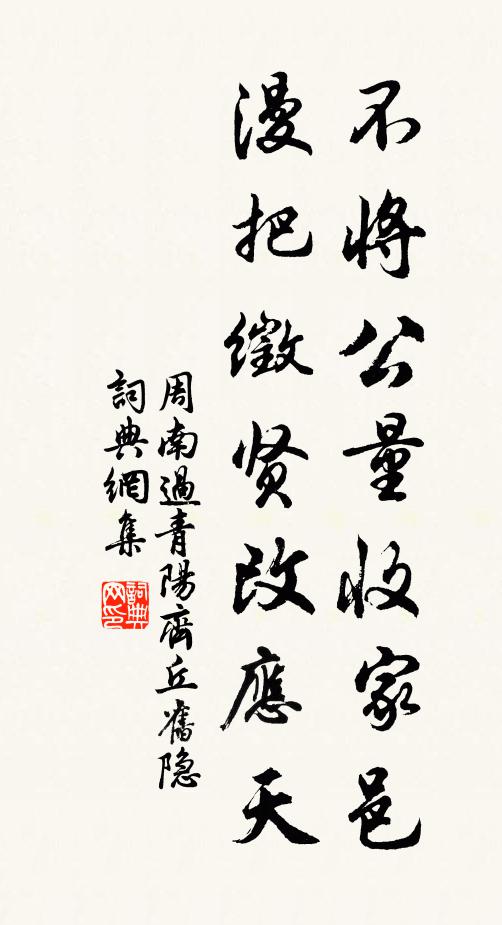 不將公量收家邑
漫把徵贤改應天
周南過青陽齊丘舊隐
詞典網集
詞典网印